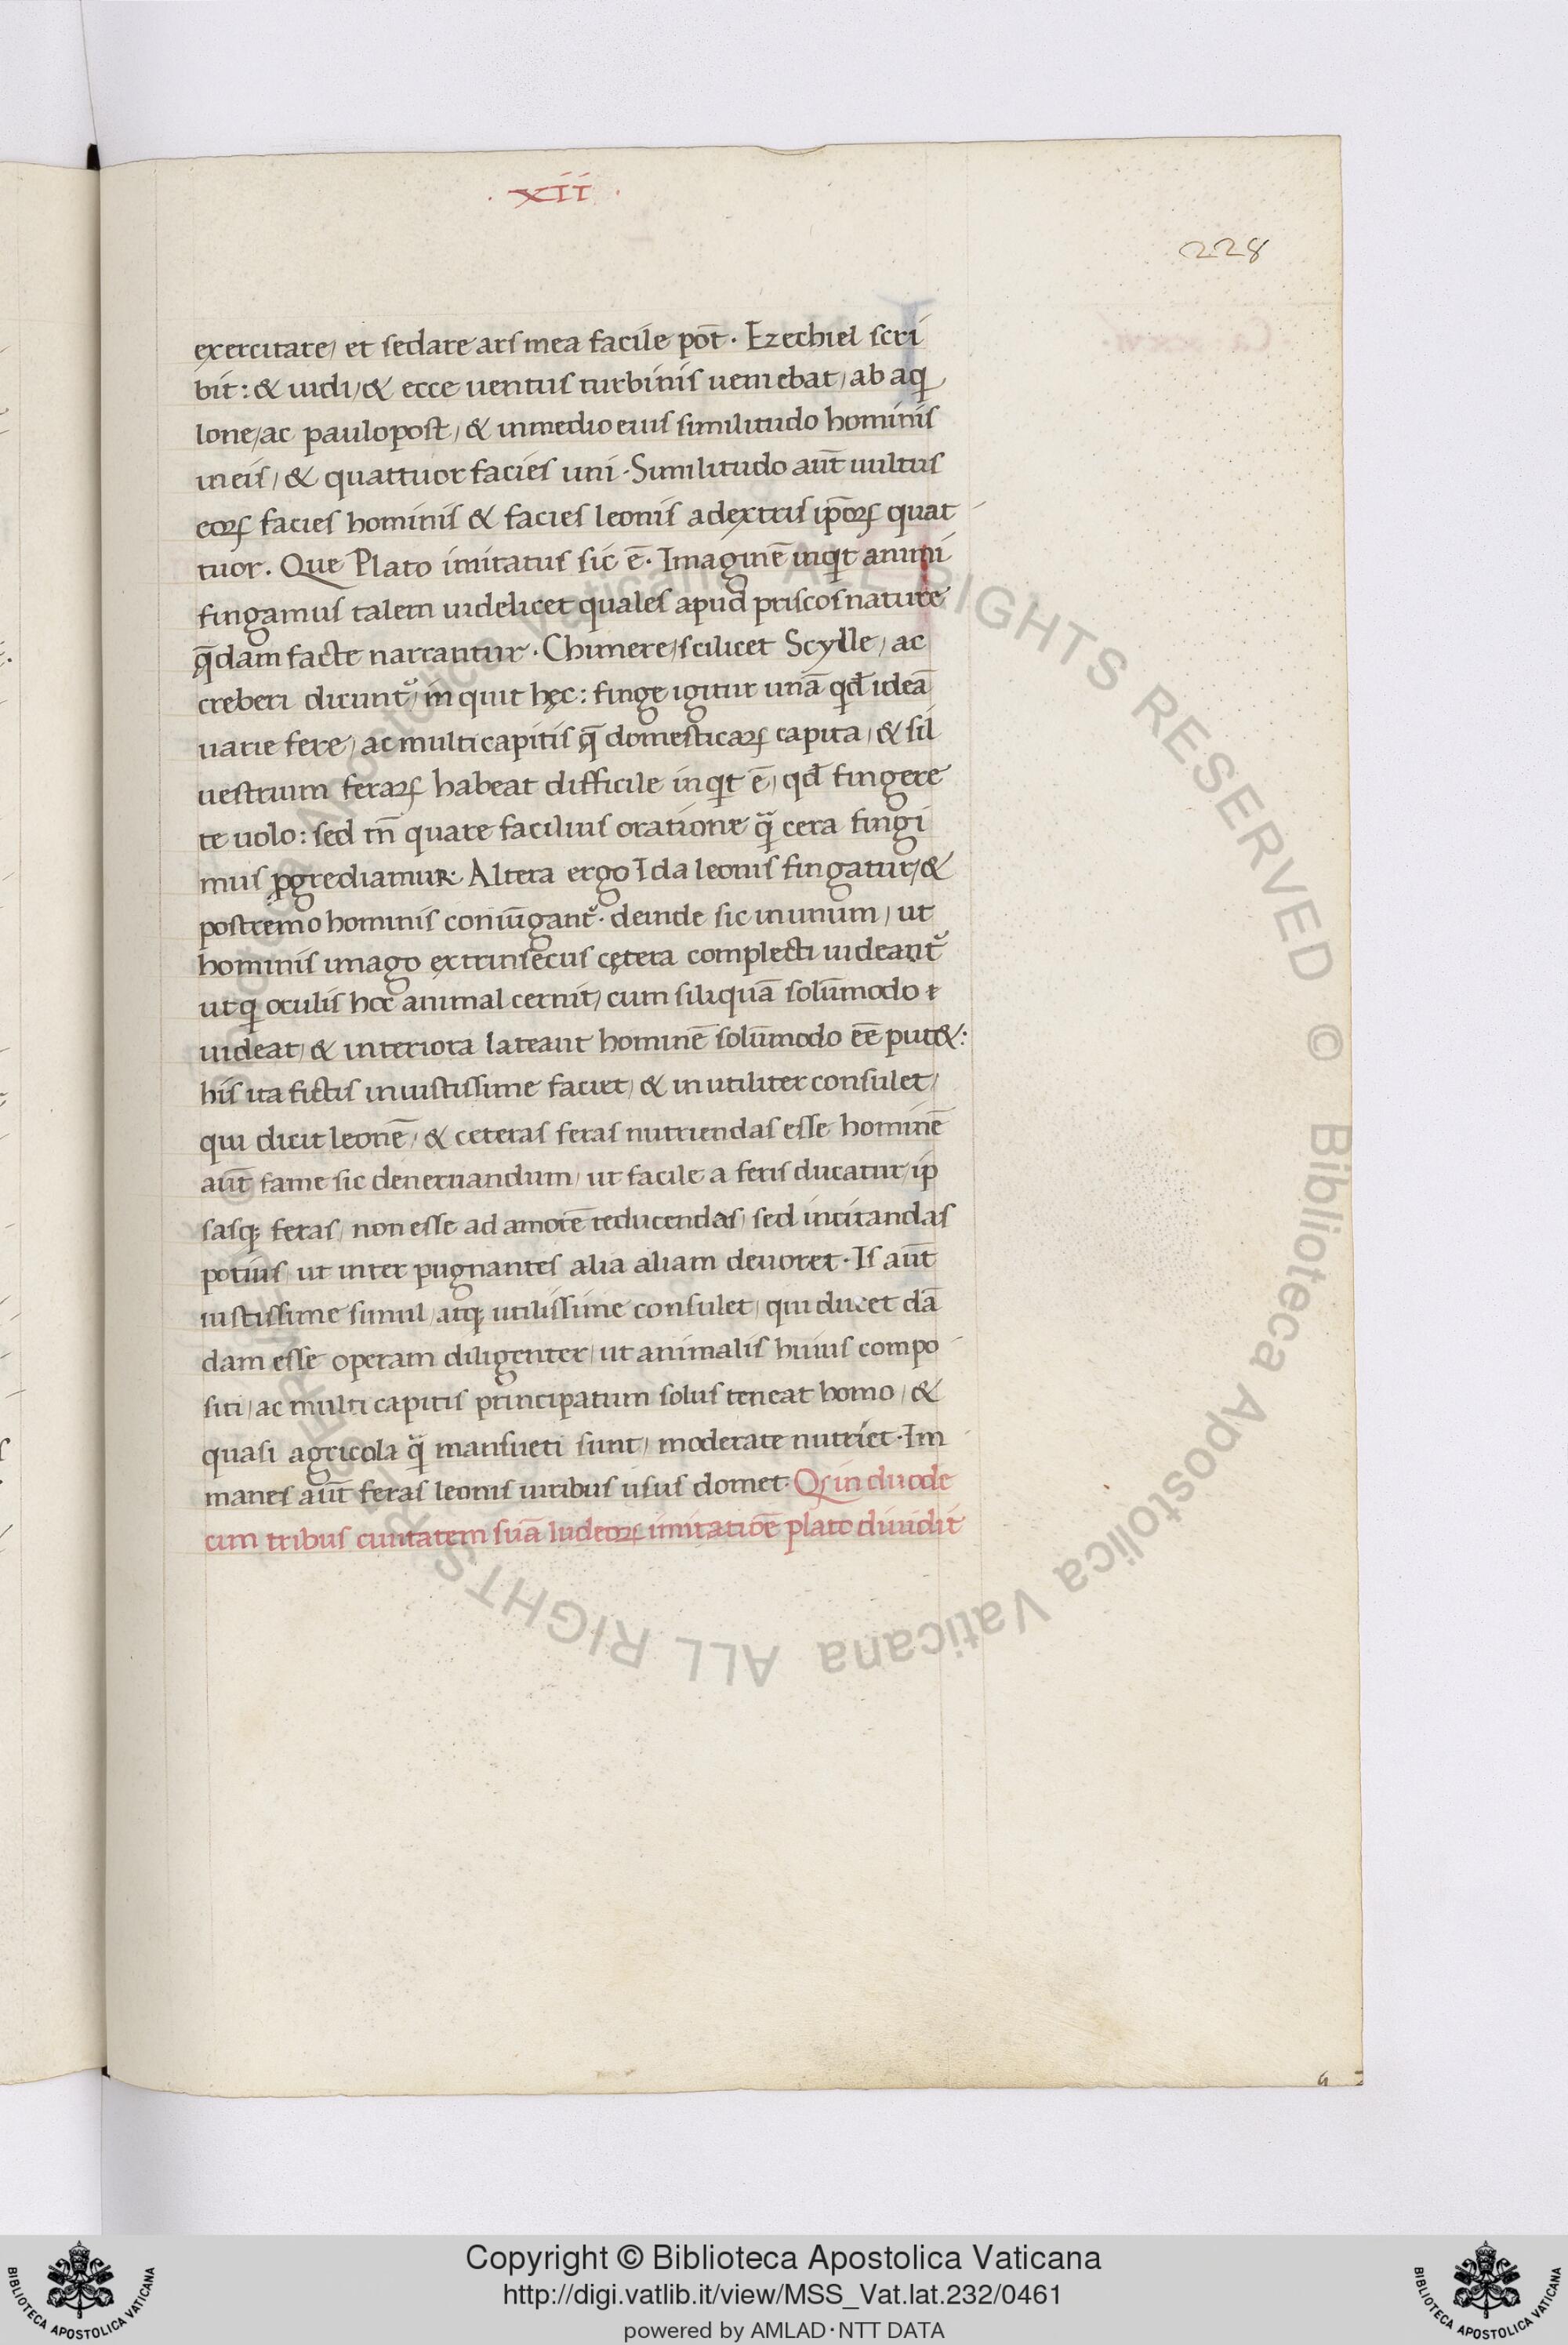 · xii ·
228
exercitare, et sedare ars mea facile pōt. Ezechiel scri
bit: & uidi, & ecce uentus turbinis ueniebat, ab aq
lone, ac paulopost, & in medio eius similitudo hominis
in eis, & quattuor facies uni. Similitudo aūt uultus
eoꝝ facies hominis & facies leonis a dextris ip̄oꝝ quat
tuor. Que Plato imitatus sic ē. Imaginē inqt animi
fingamus talem uidelicet quales apud priscos nature
q̄dam facte narrantur. Chimere, scilicet Scylle, ac
creberi dicunt᷑, in quit hęc: finge igitur unā qd̄ ideā
uarie fere, ac multicapitis q̄ domesticaꝝ capita, & sil
uestrium feraꝝ habeat difficile inqt ē, qd̄ fingere
te uolo: sed tn̄ quare facilius oratione q̈ cera fingi
mus ꝓgrediamur. Altera ergo Ida leonis fingatur, &
postremo hominis coniūgant᷑. deinde sic in unum, ut
hominis imago extrinsecus cętera complecti uideant᷑
ut q oculis hoc animal cernit, cum siliquā solūmodo e
uideat, & interiora lateant hominē solūmodo eē put&:
his ita fictis iniustissime faciet, & inutiliter consulet,
qui dicit leonē, & ceteras feras nutriendas esse hominē
aūt fame sic deneruandum, ut facile a feris ducatur, ip
sasq; feras, non esse ad amorē reducendas, sed incitandas
potius, ut inter pugnantes alia aliam deuoret. Is aūt
iustissime simul, atq; utilissime consulet, qui ducet dā
dam esse operam diligenter, ut animalis huius compo
siti, ac multi capitis principatum solus teneat homo, &
quasi agricola q̈ mansueti sunt, moderate nutriet. Im
manes aūt feras leonis uiribus usus domet. Qꝫ in duode
cim tribus ciuitatem suā Iudeoꝝ imitatiōe plato diuidit
ALL RIGHTS RESERVED © Biblioteca Apostolica Vaticana
Copyright © Biblioteca Apostolica Vaticana
http://digi.vatlib.it/view/MSS_Vat.lat.232/0461
powered by AMLAD·NTT DATA
BIBLIOTECA APOSTOLICA VATICANA
BIBLIOTECA APOSTOLICA VATICANA